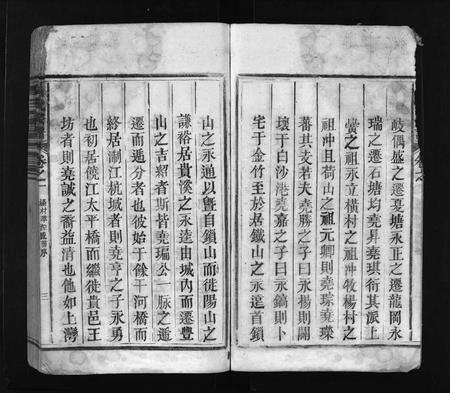 岐偶盛之遷夏塘永正之遷龍岡永
瑞之遷石塘均堯昇堯琪衍其派上
黌之祖永立橫村之祖沖牧楊村之
祖沖且荷山之祖元卿則堯琮堯璨
蕃其支若夫堯勝之子曰永楊則開
壤于白沙港堯嘉之子曰永鎬則卜
宅于金竹至於居鐵山之永遙首鎖
山之永通以暨自鎖山而徙陽山之
謙裕居貴溪之永逵由城內而遷豐
山之吉紹者斯皆堯瑥公一脉之遞
遷而通分者也彼始于餘干河橋而
終居浙江杭城者則堯亨之子永勇
也初居饒江太平橋而繼徙貴邑王
坊者則堯誠之裔益清也他如上灣
卷之一
三